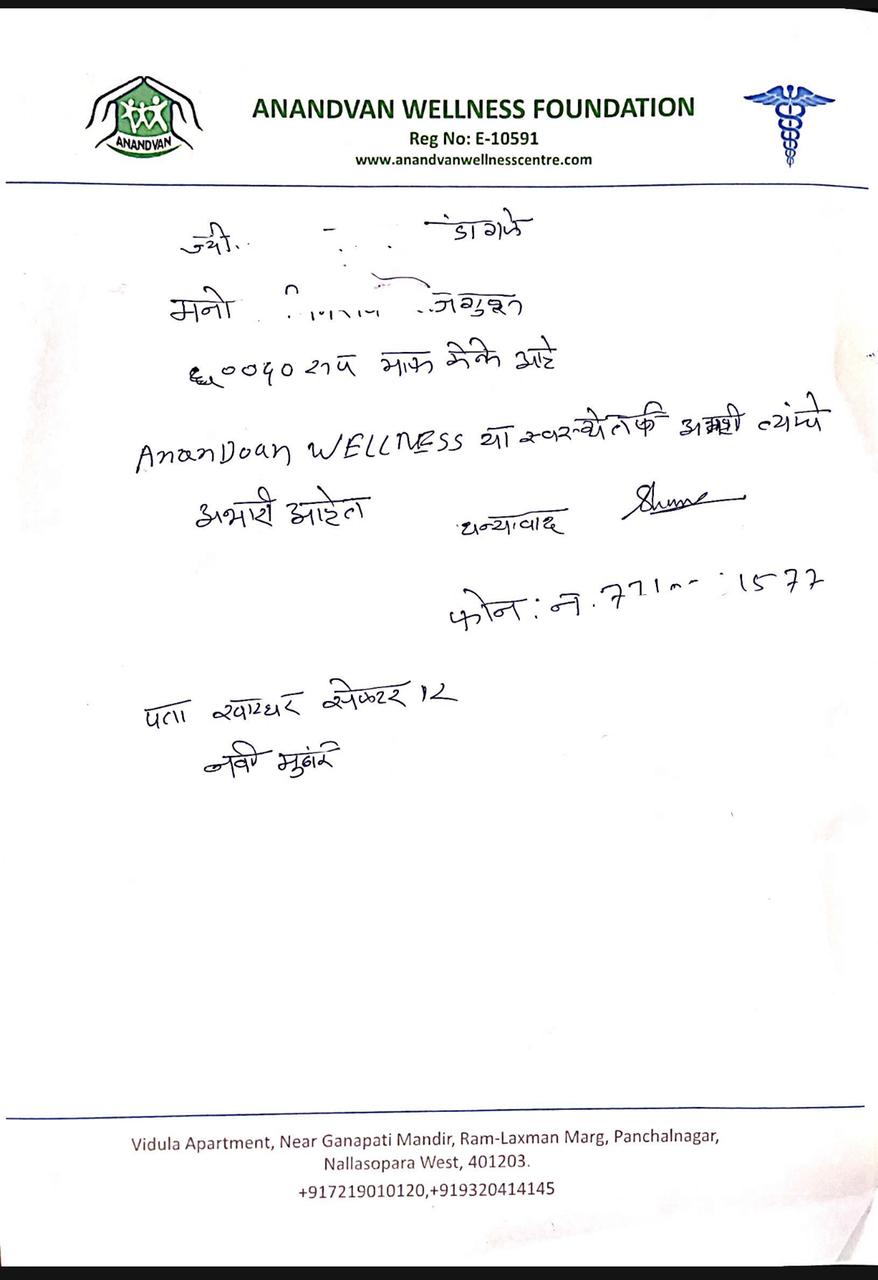 ANANDVAN
ANANDVAN WELLNESS FOUNDATION
Reg No: E-10591
www.anandvanwellnesscentre.com
डागळे
मनो
माफ केले आहे
AnanDvan WELLNESS या स्वस्थेतर्फे आम्ही त्यांचे
अभारी आहेत
धन्यावाद
फोन: नं. 771 1577
पता खारघर सेक्टर 12
नवी मुबंई
Vidula Apartment, Near Ganapati Mandir, Ram-Laxman Marg, Panchalnagar,
Nallasopara West, 401203.
+917219010120,+919320414145